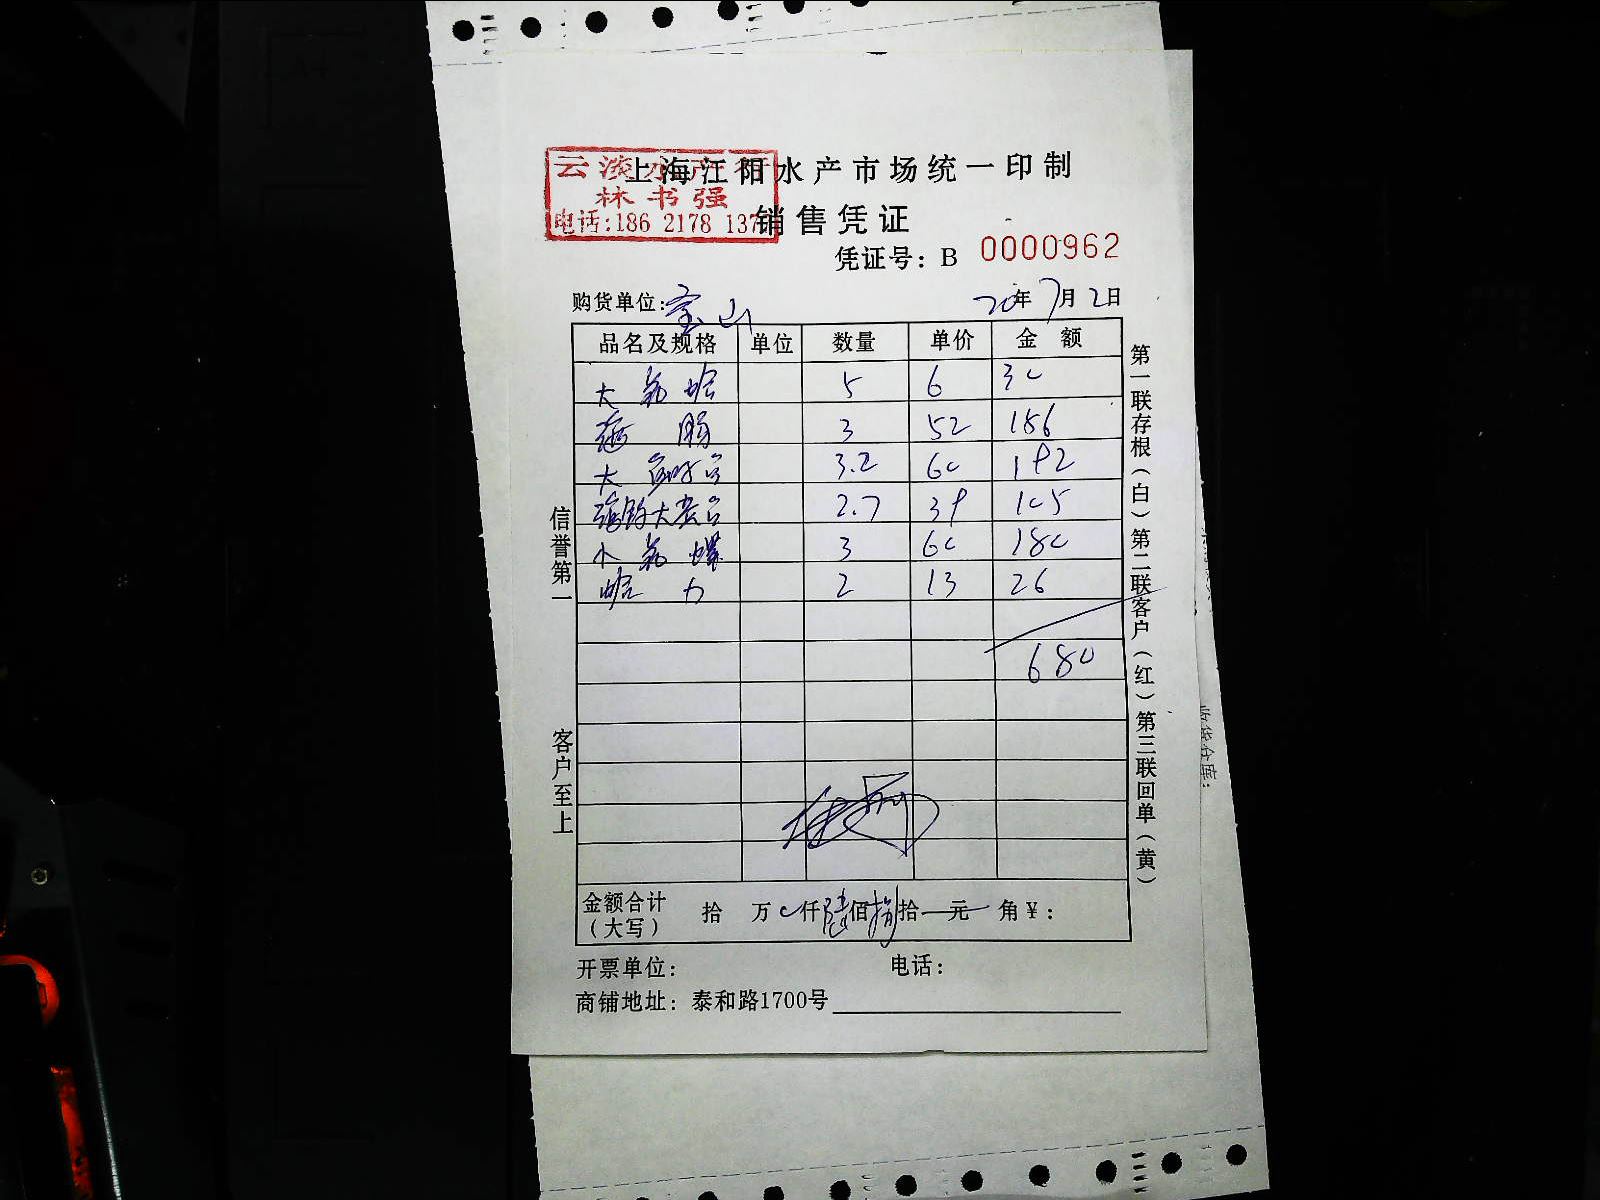 上海江阳水产市场统一印制
云淡水产行
林书强
电话:186 2178 137
销售凭证
凭证号: B 0000962
购货单位: 宝山
20年7月2日
品名及规格 单位 数量 单价 金 额
大 蛤 5 6 30
3 52 156
大 3.2 60 192
2.7 39 105
小 螺 3 60 180
蛤 力 2 13 26
680
金额合计 拾 万 0仟陆佰捌拾一元 角¥:
(大写)
开票单位: 电话:
商铺地址: 泰和路1700号
信誉第一
客户至上
第一联存根(白)第二联客户(红)第三联回单(黄)